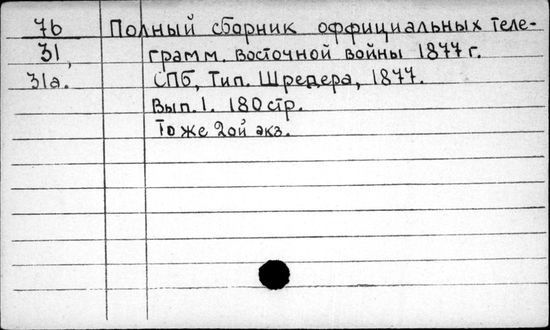 76 Полный сборник оффициальных теле-
31, грамм. восточной войны 1877 г.
31а. СПб, Тип. Шредера, 1877.
Вып. 1. 180 стр.
То же 2ой экз.